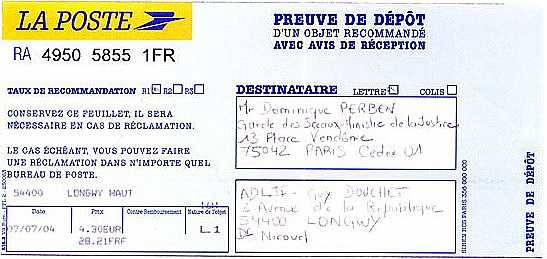 LA POSTE
PREUVE DE DÉPÔT
D'UN OBJET RECOMMANDÉ
AVEC AVIS DE RÉCEPTION
RA 4950 5855 1FR
TAUX DE RECOMMANDATION R1 R2 R3
DESTINATAIRE LETTRE COLIS
CONSERVEZ CE FEUILLET, IL SERA
NÉCESSAIRE EN CAS DE RÉCLAMATION.
LE CAS ÉCHÉANT, VOUS POUVEZ FAIRE
UNE RÉCLAMATION DANS N'IMPORTE QUEL
BUREAU DE POSTE.
Mr Dominique PERBEN
Garde des Sceaux-Ministre de la Justice
13 Place Vendôme
75042 PARIS Cedex 01
54400 LONGWY HAUT
Date Prix Contre-Remboursement Nature de l'objet
07/07/04 4.30EUR L1
28.21FRF
Guy DOUCHET
2 Avenue de la République
54400 LONGWY
PREUVE DE DÉPÔT